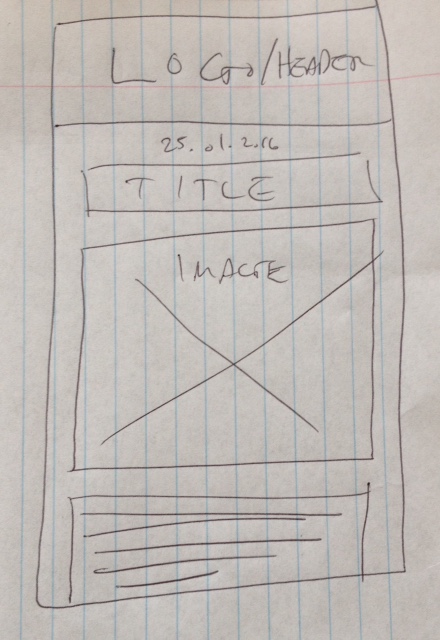 LOGO/HEADER
25.01.2.16
TITLE
IMAGE